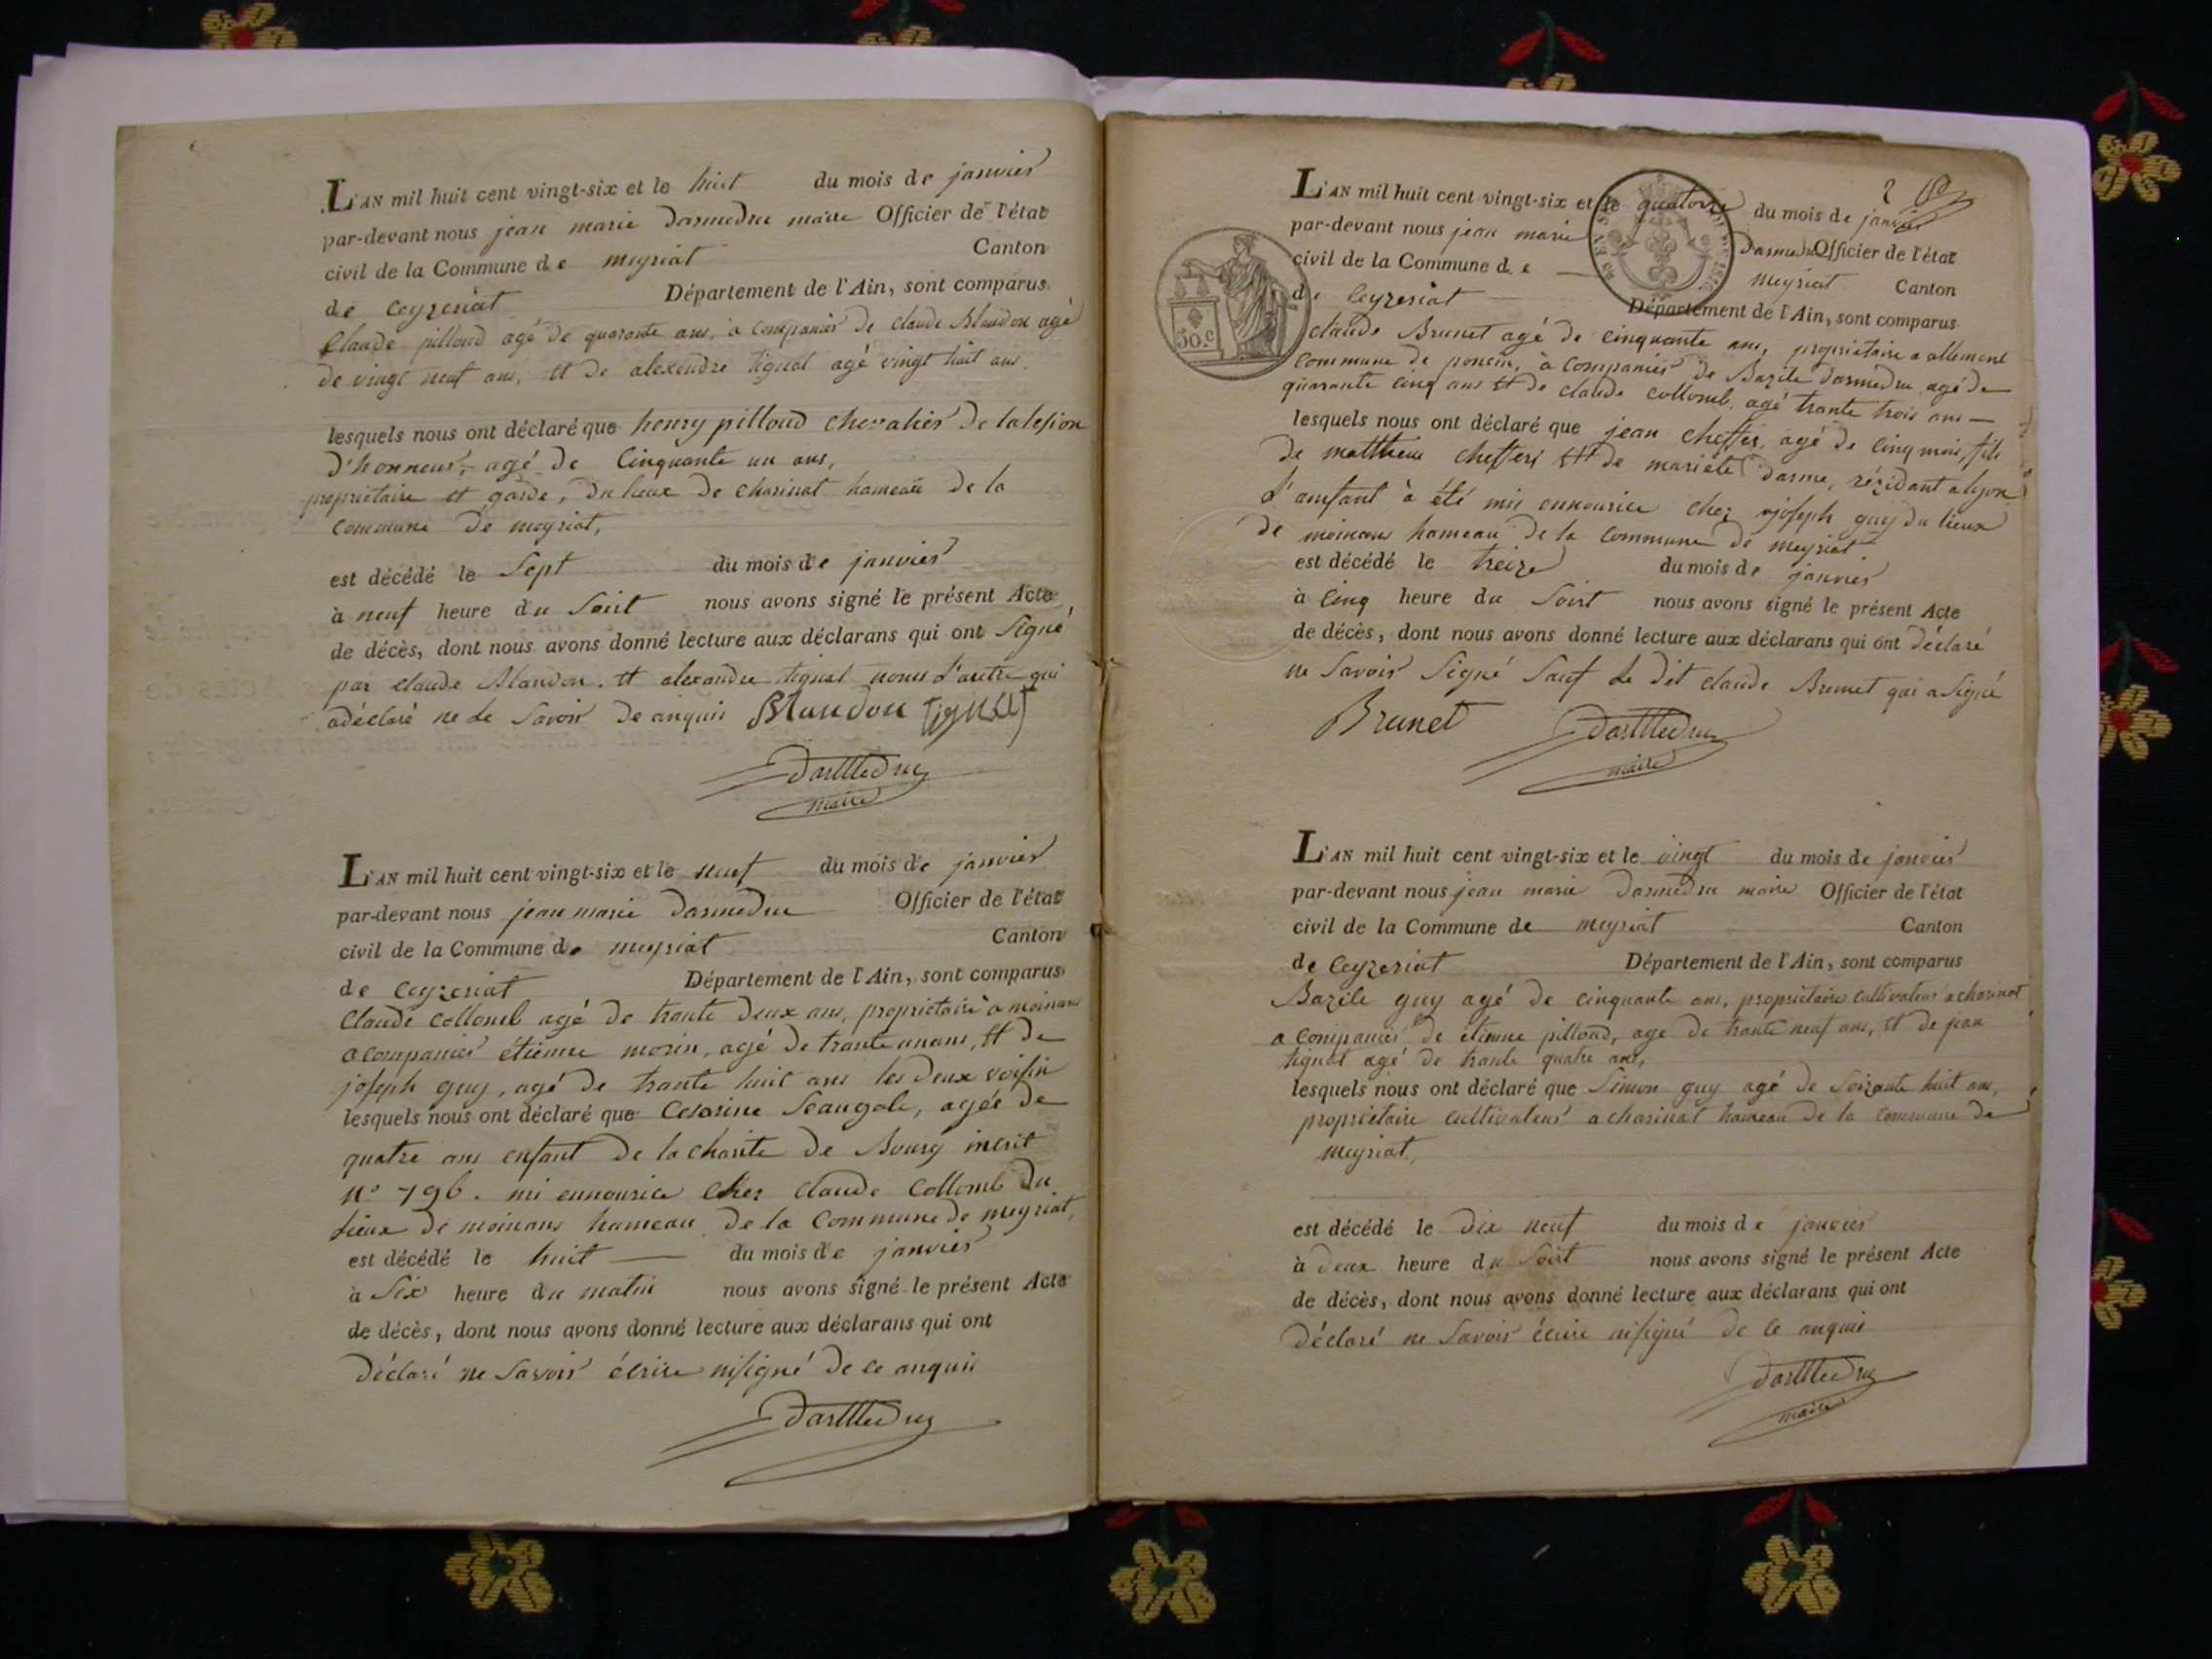 L'AN mil huit cent vingt-six et le huit du mois de janvier
par-devant nous jean marie Darmedru maire Officier de l'état
civil de la Commune de meyriat Canton
de ceyzeriat Département de l'Ain, sont comparus
Claude pilloud agé de quarante ans, a companier de claude Blandon agé
de vingt neuf ans, et de alexendre tignat agé vingt huit ans.
lesquels nous ont déclaré que henry pilloud chevalier de la lesion
d'honneur, agé de Cinquante un ans,
propriétaire et garde, du lieux de charinat hameau de la
commune de meyriat,
est décédé le Sept du mois de janvier
à neuf heure du Soirt nous avons signé le présent Acte
de décès, dont nous avons donné lecture aux déclarans qui ont Signé
par claude Blandon. et alexandre tignat nonus l'autre qui
adéclaré ne le Savoir de anquis Blandon tignat
Darmedru
maire
L'AN mil huit cent vingt-six et le neuf du mois de janvier
par-devant nous jean marie Darmedru Officier de l'état
civil de la Commune de meyriat Canton
de ceyzeriat Département de l'Ain, sont comparus
Claude collomb agé de trante deux ans, propriétaire a moinans
acompanier étienne morin, agé de trante unans, et de
joseph guy, agé de trante huit ans les deux voisin
lesquels nous ont déclaré que Cesarine Seaugale, agée de
quatre ans enfant de la charite de Bourg inscrit
N° 796. mi ennourice chez claude Collomb du
Lieux de moinans hameau de la Commune de meyriat,
est décédé le huit du mois de janvier
à Six heure du matin nous avons signé le présent Acte
de décès, dont nous avons donné lecture aux déclarans qui ont
déclaré ne Savoir écrire nisigné de ce anquis
Darmedru
2
L'AN mil huit cent vingt-six et le quatorze du mois de janvier
par-devant nous jean marie Darmedru Officier de l'état
civil de la Commune de meyriat Canton
de Ceyzeriat Département de l'Ain, sont comparus
30.c
claude Brunet agé de cinquante ans, propriétaire a allement
commune de poncin, à companier de Bazile darmedru agé de
quarante cinq ans et de claude collomb, agé trante trois ans
lesquels nous ont déclaré que jean cheffer, agé de cinq mois, fils
de matthieu cheffer et de mariéte Darme, rézidant a lyon
L'amfant à été mis ennourice chez joseph guy du lieux
de moinans hameau de la Commune de meyriat
est décédé le treize du mois de janvier
à Cinq heure du Soirt nous avons signé le présent Acte
de décès, dont nous avons donné lecture aux déclarans qui ont déclaré
ne Savoir Signé Sauf Le dit claude Brunet qui a Signé
Brunet Darmedru
maire
L'AN mil huit cent vingt-six et le vingt du mois de janvier
par-devant nous jean marie Darmedru maire Officier de l'état
civil de la Commune de meyriat Canton
de Ceyzeriat Département de l'Ain, sont comparus
Bazile guy agé de cinquante ans, propriétaire Cultivateur a charinat
a companier de étienne pilloud, age de trante neuf ans, et de jean
tignat agé de trante quatre ans,
lesquels nous ont déclaré que Simon guy agé de Soixante huit ans,
propriétaire cultivateur a charinat hameau de la commune de
meyriat,
est décédé le dix neuf du mois de janvier
à deux heure du Soirt nous avons signé le présent Acte
de décès, dont nous avons donné lecture aux déclarans qui ont
déclaré ne Savoir écrire nisigné de ce anquis
Darmedru
maire